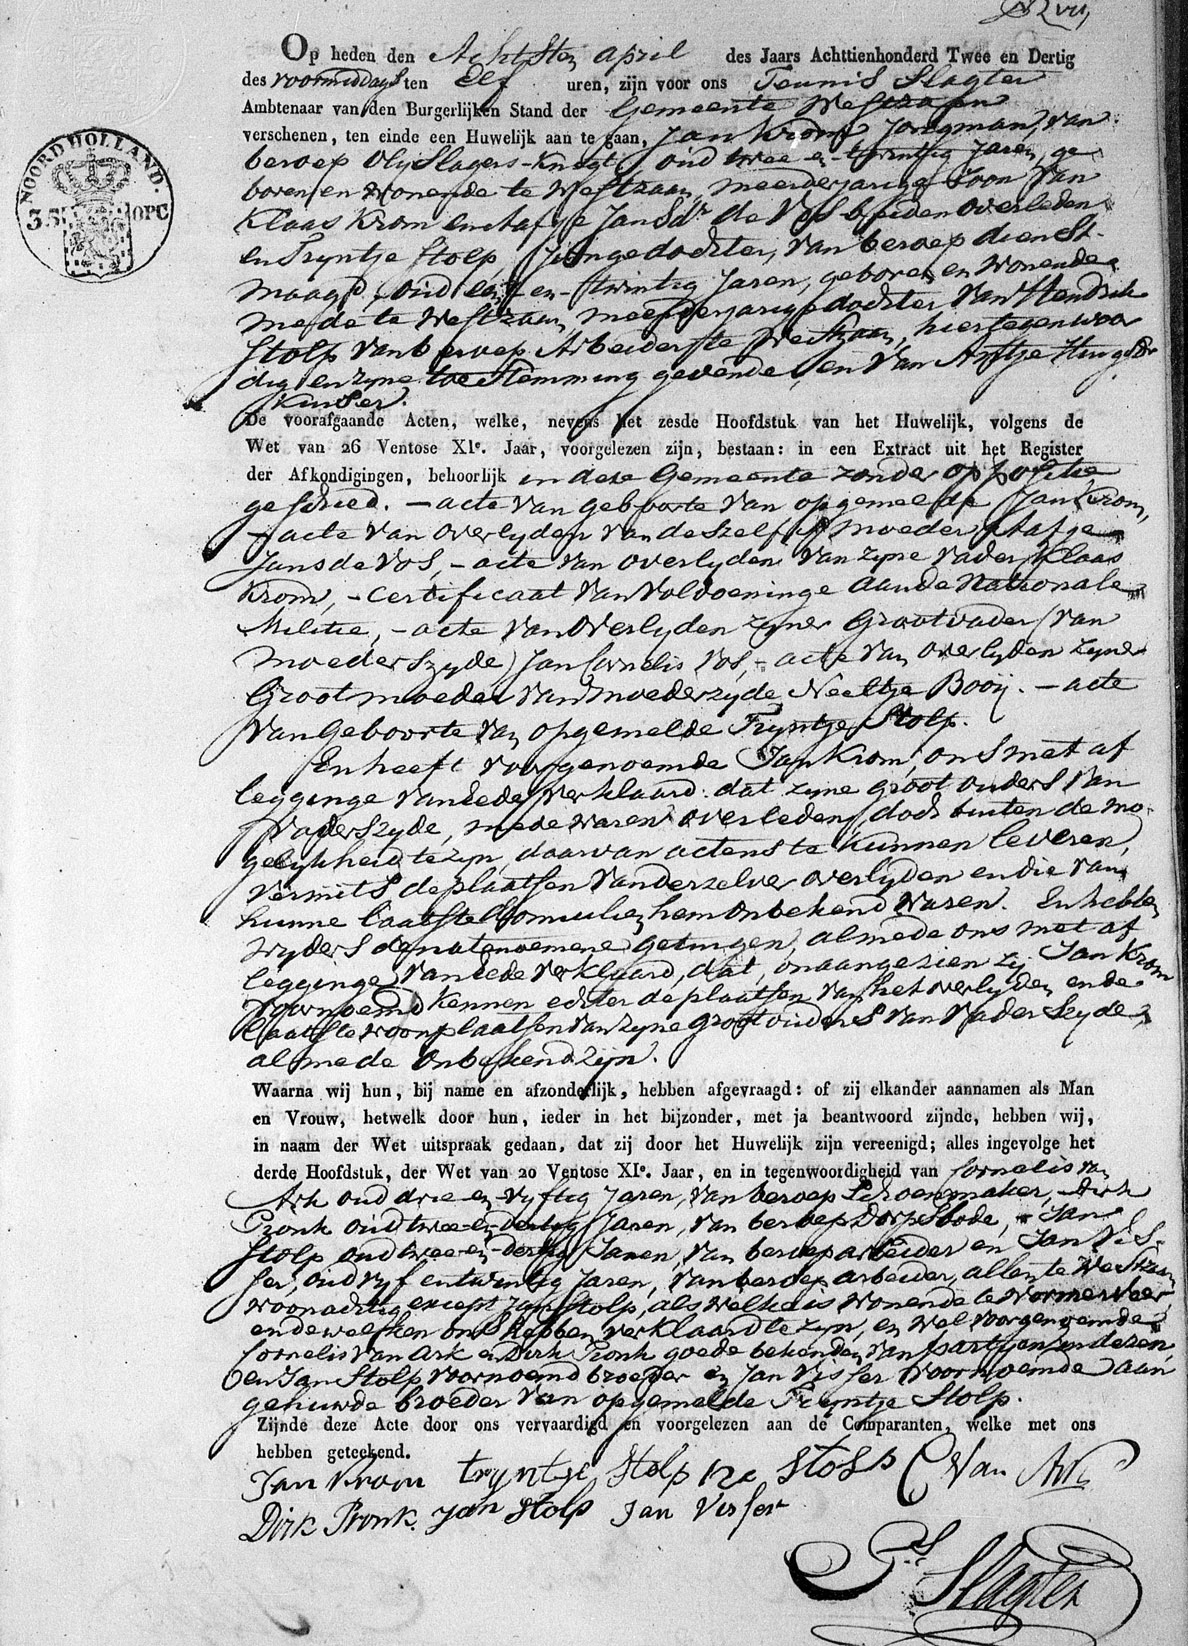 Op heden den Achtsten april des Jaars Achttienhonderd Twee en Dertig
des voormiddags ten Elf uren, zijn voor ons Teunis Slagter
Ambtenaar van den Burgerlijken Stand der Gemeente Westzaan
verschenen, ten einde een Huwelijk aan te gaan, Jan Krom Jongman, van
beroep Oly Slagers-Knegt, oud twee-en-twintig Jaren, ge
boren en wonende te Westzaan, meerderjarige Soon van
Klaas Krom en Jans de Vos beiden overleden
en Tryntje Stolp, Jongedochter, van beroep dienst-
maagd, oud een-en-twintig Jaren, geboren en wonende
mede te Westzaan, meerderjarige dochter van Hendrik
Stolp van beroep Arbeider te Westzaan, hiertegenwoor
dig en zyne toestemming gevende, en van Antje
De voorafgaande Acten, welke, nevens het zesde Hoofdstuk van het Huwelijk, volgens de
Wet van 26 Ventose XIe. Jaar, voorgelezen zijn, bestaan: in een Extract uit het Register
der Afkondigingen, behoorlijk in deze Gemeente zonder oppositie
geschied. - acte van geboorte van opgemelde Jan Krom,
- acte van overlyden van deszelfs moeder
Jans de Vos, - acte van overlyden van zyne vader Klaas
Krom, - Certificaat van Voldoeninge aan de Nationale
Militie, - acte van overlyden zyner Grootvader (van
moeders zyde) Jan Cornelis Vos, - acte van overlyden zyner
Grootmoeder van moederzyde Neeltje Booij. - acte
van Geboorte van opgemelde Tryntje Stolp.
En heeft voorgenoemde Jan Krom, ons met af
legginge van eede verklaard: dat zyne groot ouders van
vaders zyde, mede waren overleden, doch buiten de mo-
gelykheid te zyn, daarvan actens te kunnen leveren,
vermits de plaatsen van derzelver overlyden en die van
hunne laatste domicilien hem onbekend waren. En hebben
wyders de natenoemene getuigen, almede ons met af
legginge van eede verklaard, dat, onaangezien zij Jan Krom
voornoemd kennen echter de plaatsen van het overlyden en de
laatste woonplaatsen van zyne grootouders van vaders zyde
almede onbekend zijn.
Waarna wij hun, bij name en afzonderlijk, hebben afgevraagd: of zij elkander aannamen als Man
en Vrouw, hetwelk door hun, ieder in het bijzonder, met ja beantwoord zijnde, hebben wij,
in naam der Wet uitspraak gedaan, dat zij door het Huwelijk zijn vereenigd; alles ingevolge het
derde Hoofdstuk, der Wet van 20 Ventose XIe. Jaar, en in tegenwoordigheid van Cornelis van
Ark oud drie-en-vyftig Jaren, van beroep Schoenmaker, Dirk
Pronk oud twee-en-dertig Jaren, van beroep Dorpsbode, - Jan
Stolp oud twee-en-dertig Jaren, van beroep arbeider en Jan Vis-
ser, oud vyf en twintig Jaren, van beroep arbeider, allen te Westzaan
woonachtig, except Jan Stolp, als welke is wonende te Wormerveer,
en dewelken ons hebben verklaard te zyn, en wel voorgenoemde
Cornelis van Ark en Dirk Pronk goede bekenden van partyen in dezen,
en Jan Stolp voornoemd broeder en Jan Visser voornoemde aan
gehuwde broeder van opgemelde Tryntje Stolp.
Zijnde deze Acte door ons vervaardigd en voorgelezen aan de Comparanten, welke met ons
hebben geteekend.
Jan Krom tryntje Stolp Stolp C Van Ark
Dirk Pronk. Jan Stolp Jan Visser
Ts Slagter
NOORD HOLLAND.
35 OPC